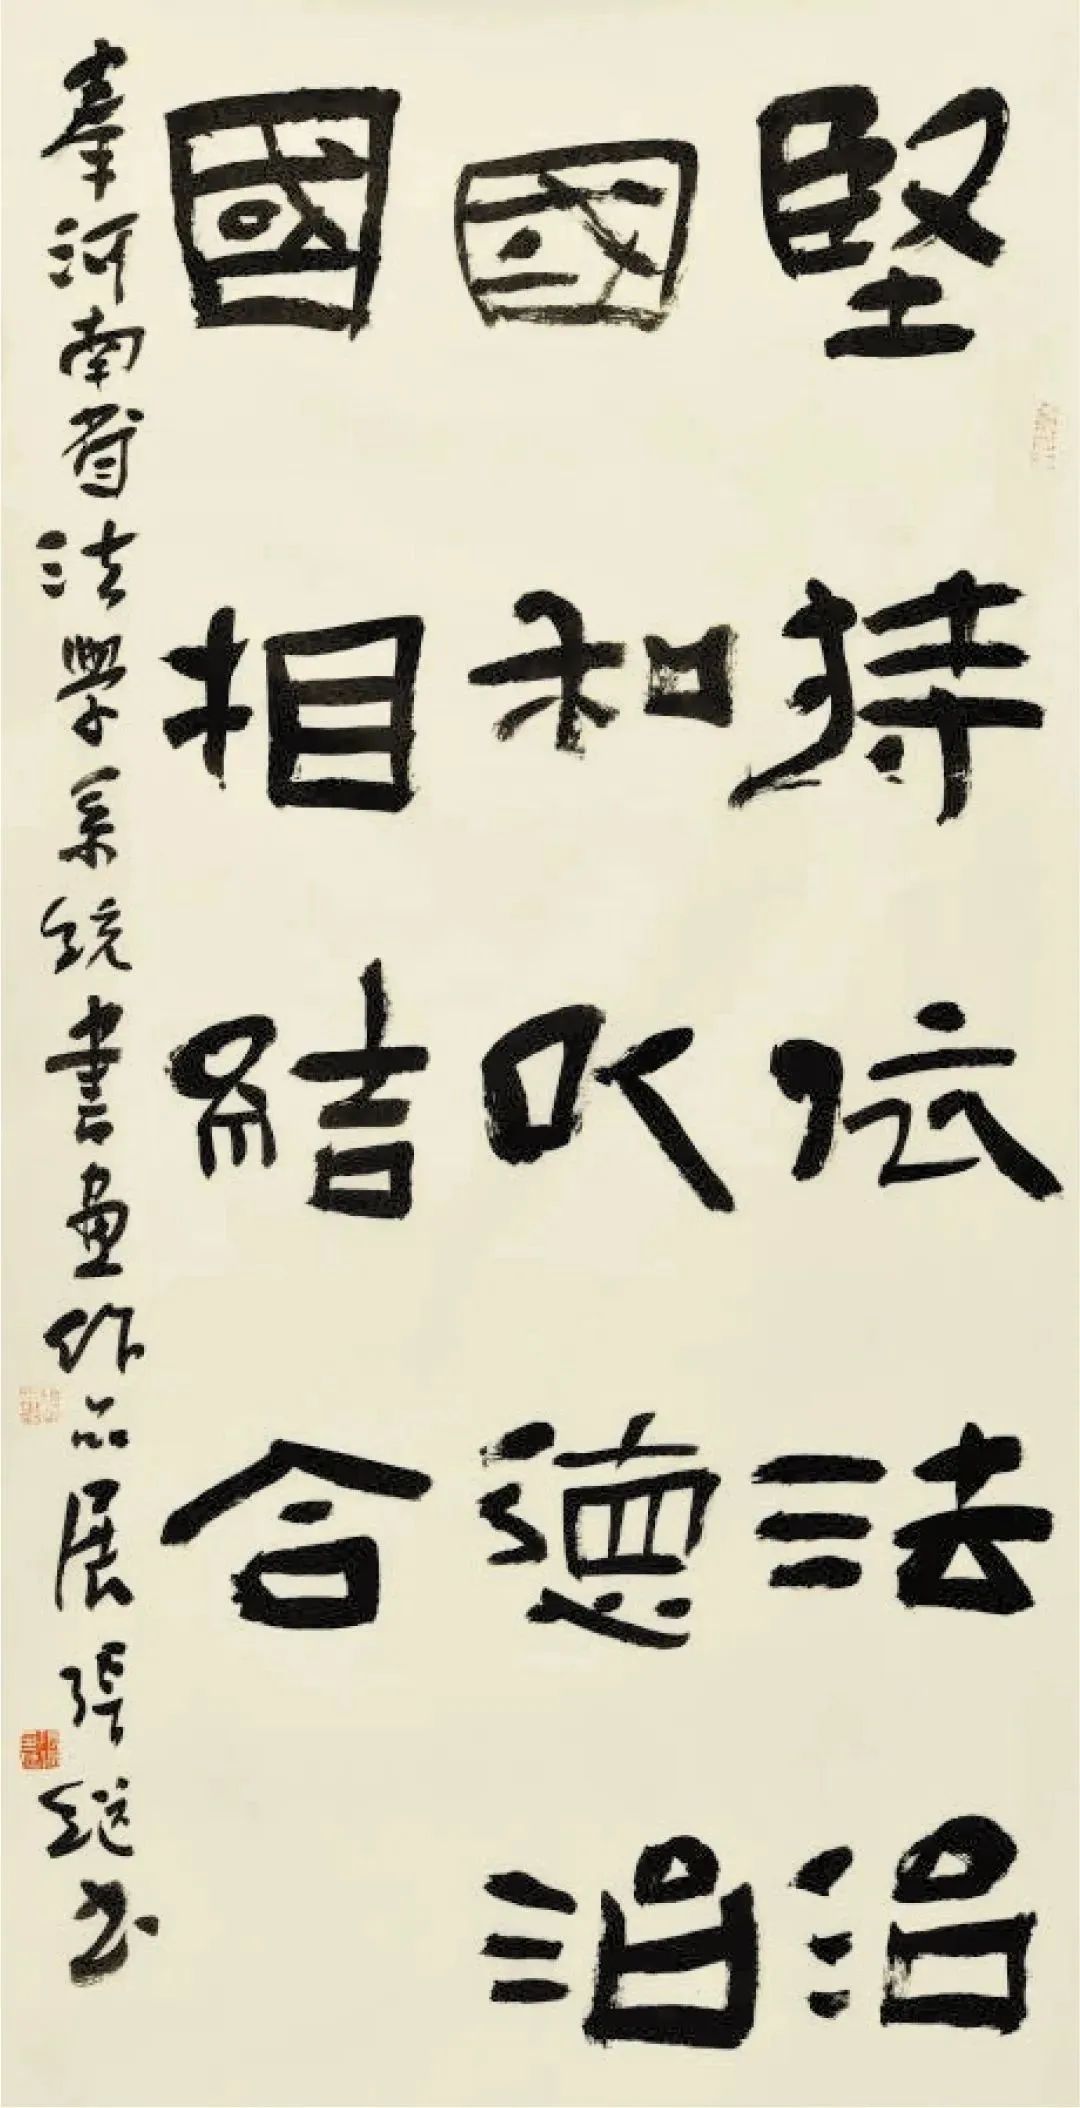 堅持依法治
國和以德治
國相結合
奉河南省法學系統書畫作品展張繼書